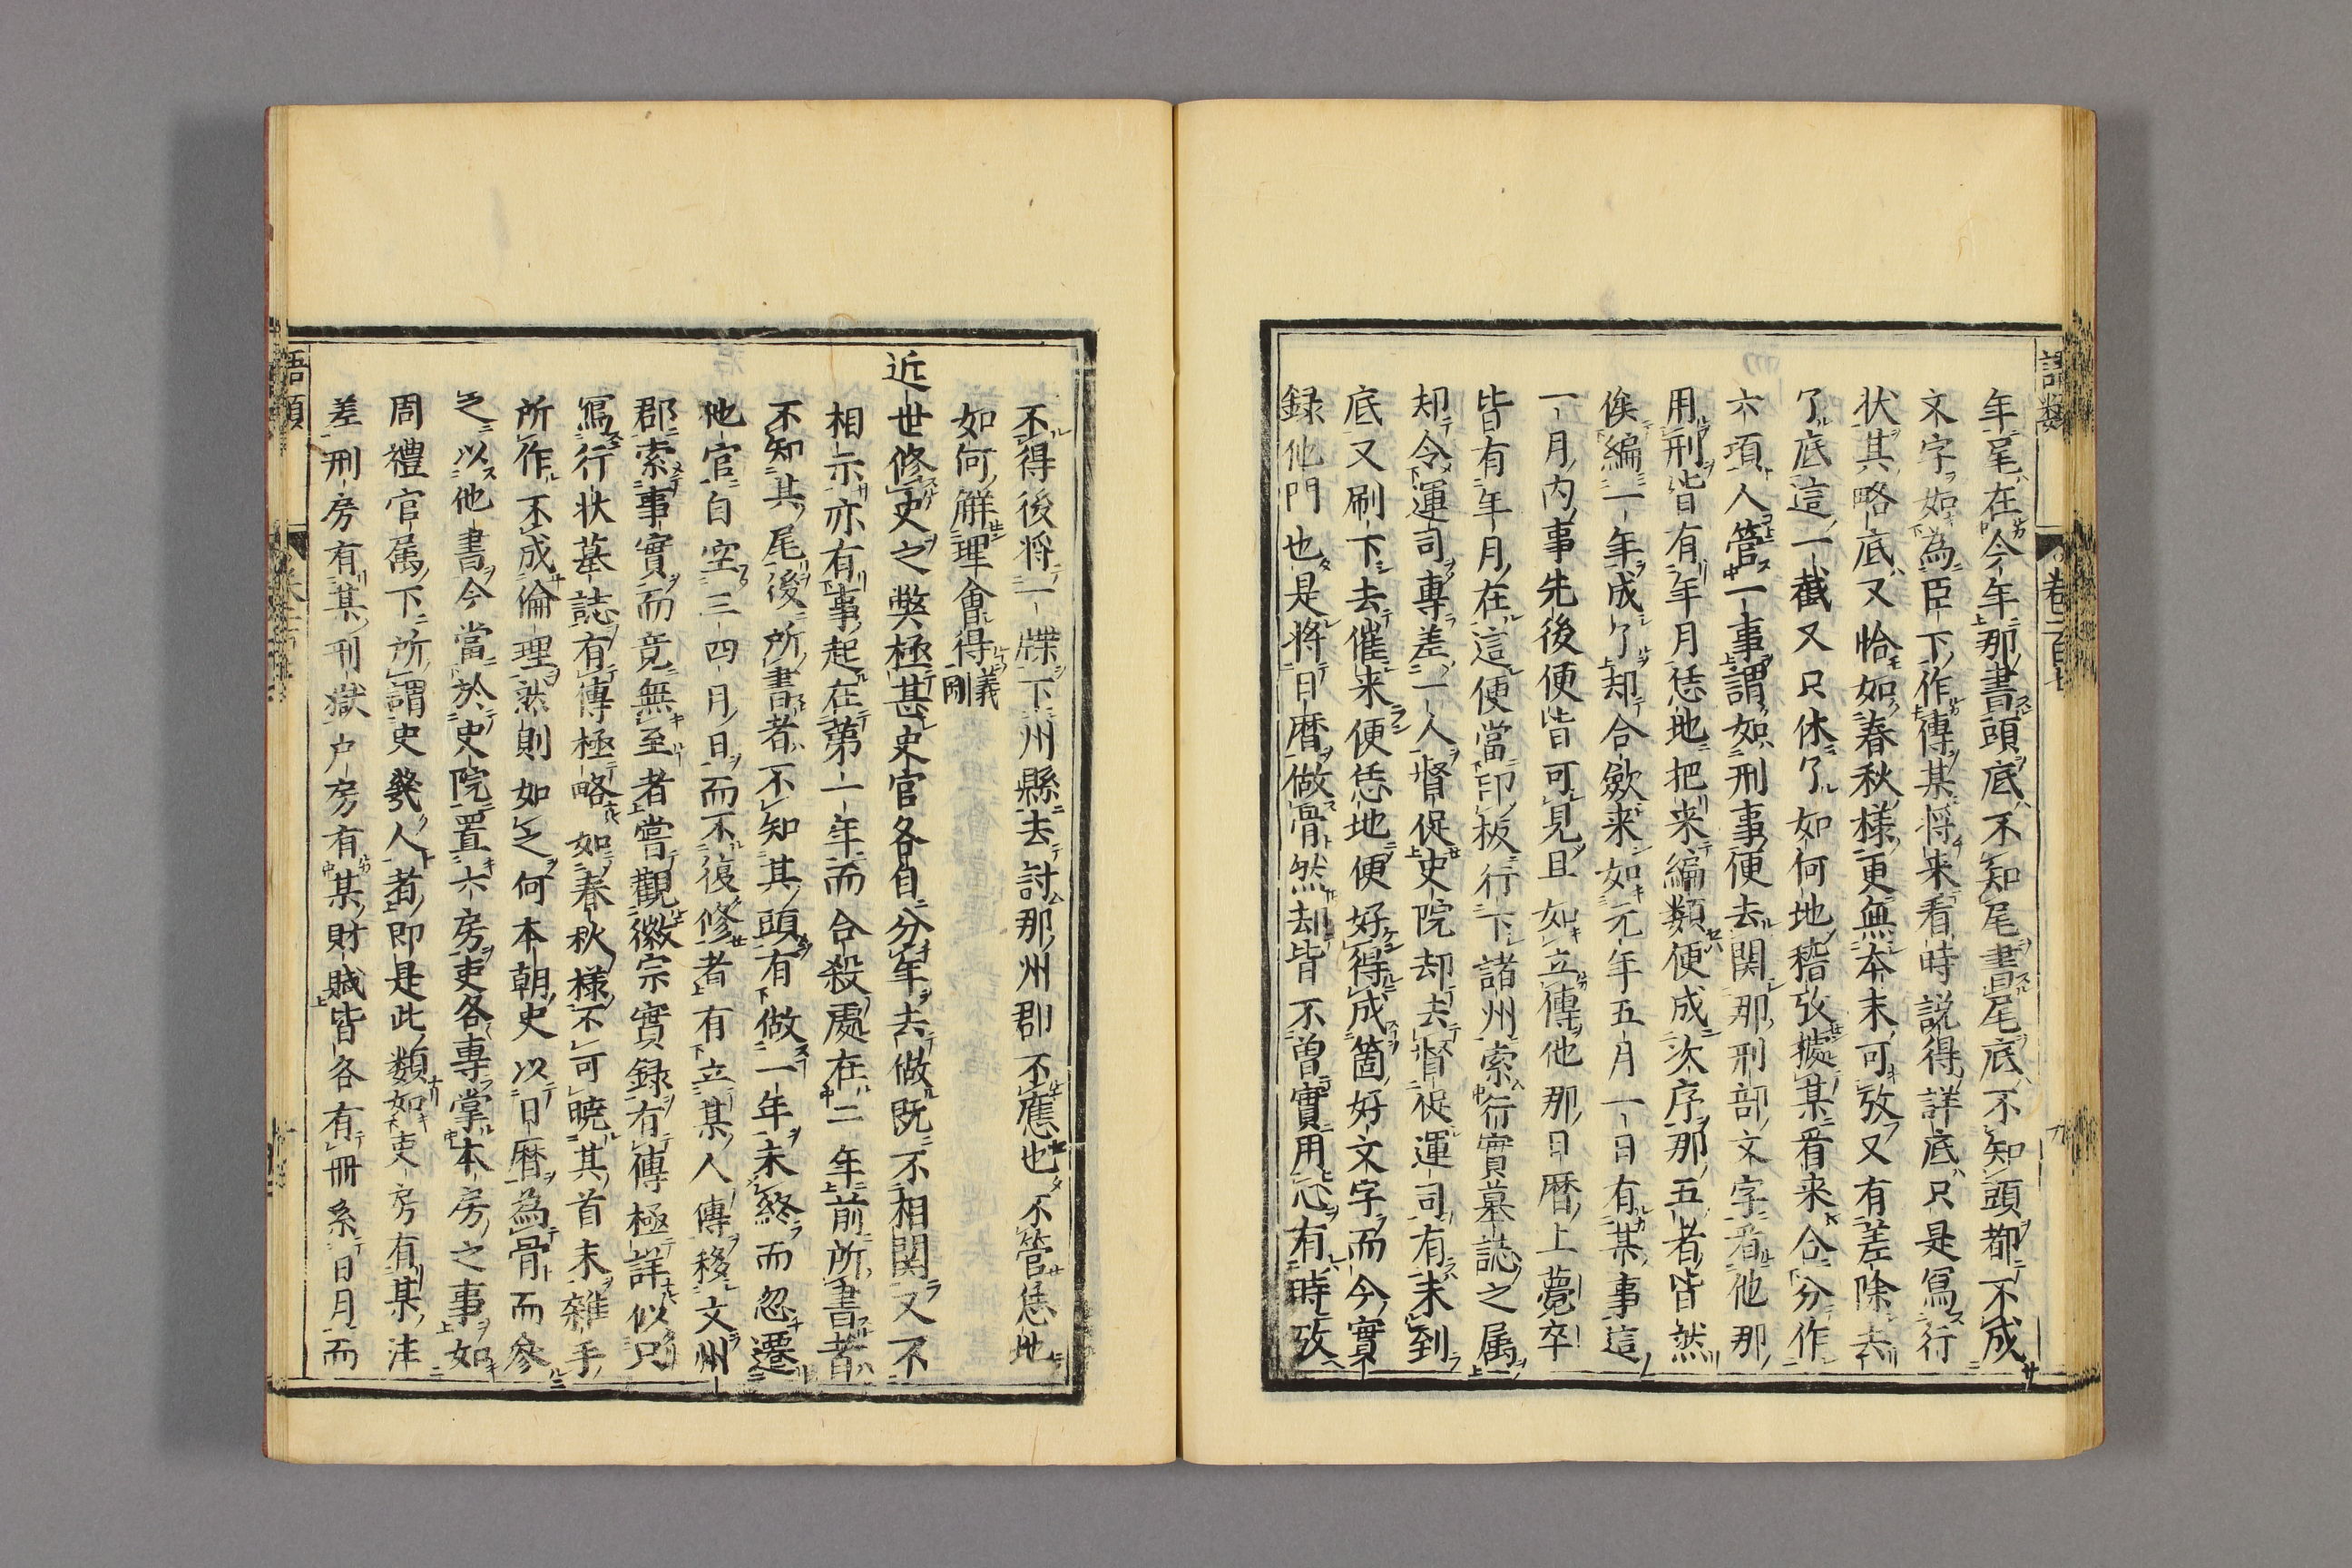 年尾在今年那書頭底不知尾書尾底不知頭都不成
文字如為臣下作傳某将来看時説得詳底只是寫行
状其略底又恰如春秋様更無本末可攷又有差除去
了底這一截又只休了如何地稽攷據某看来合分作
六項人管一事謂如刑事便去関那刑部文字看他那
用刑皆有年月恁地把来編類便成次序那五者皆然
俟編一年成了却合歛来如元年五月一日有某事這
一月内事先後便皆可見且如立傳他那日暦上薨卒
皆有年月在這便當印板行下諸州索行實墓誌之属
却令運司專差一人督促史院却去督促運司有未到
底又刷下去催来便恁地便好得成箇好文字而今實
録他門也是将日暦做骨然却皆不曽實用心有時攷
不得後将一牒下州縣去討那州郡不應也不管恁地
如何解理會得義剛
近世修史之弊極甚史官各自分年去做既不相関又不
相示亦有事起在第一年而合殺處在二年前所書者
不知其尾後所書者不知其頭有做一年未終而忽遷
他官自空三四月日而不復修者有立某人傳移文州
郡索事實而竟無至者嘗觀徽宗實録有傳極詳似只
寫行状墓誌有傳極略如春秋様不可曉其首末雜手
所作不成倫理然則如之何本朝史以日暦為骨而參
之以他書今當於史院置六房吏各專掌本房之事如
周禮官属下所謂史幾人者即是此類如吏房有某注
差刑房有某刑獄户房有某財賦皆各有冊系日月而
語類
卷一百七
九